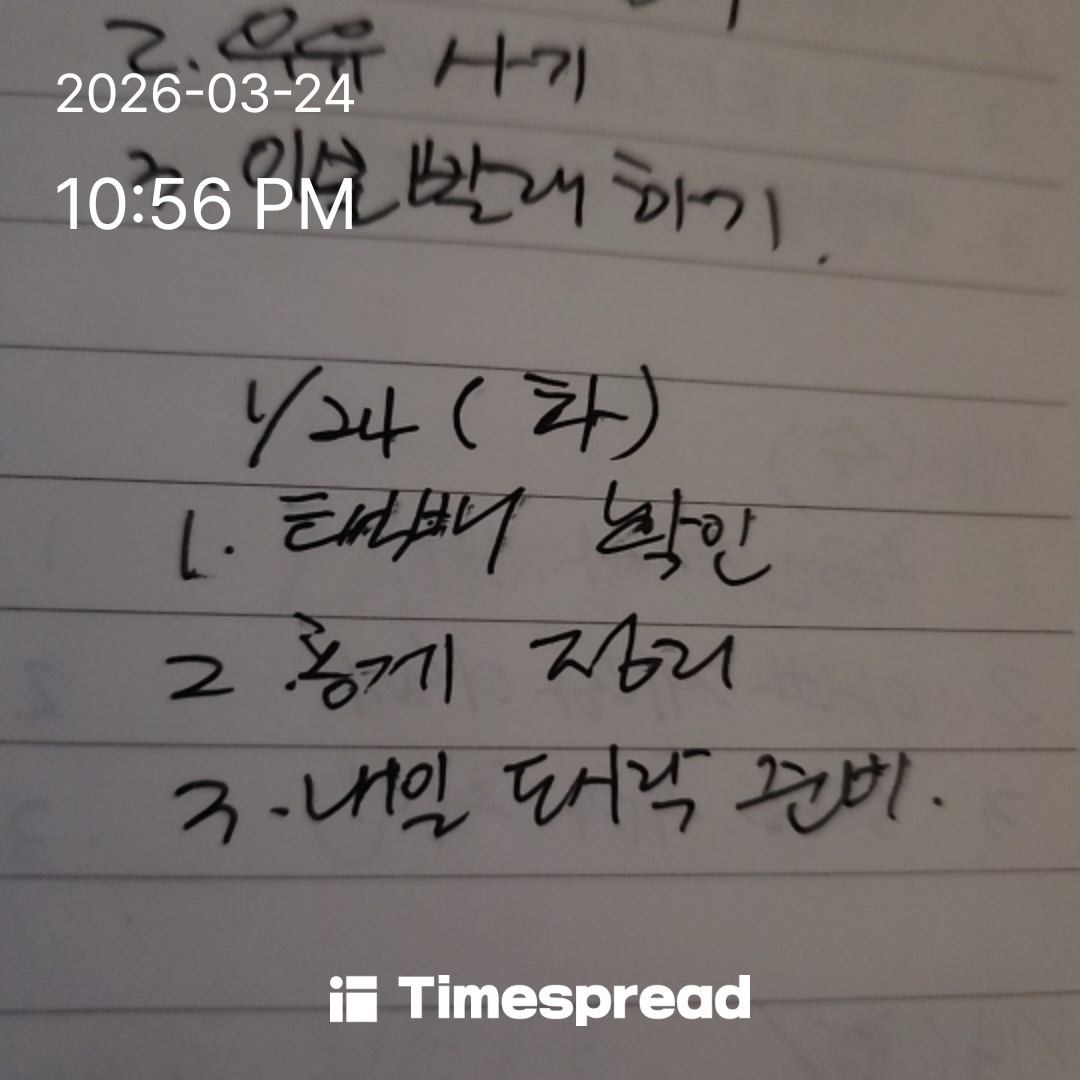 2. 우유 사기
2026-03-24
3. 이불 빨래 하기.
10:56 PM
1/24 (화)
1. 택배 확인
2 통계 정리
3. 내일 도시락 준비.
Timespread